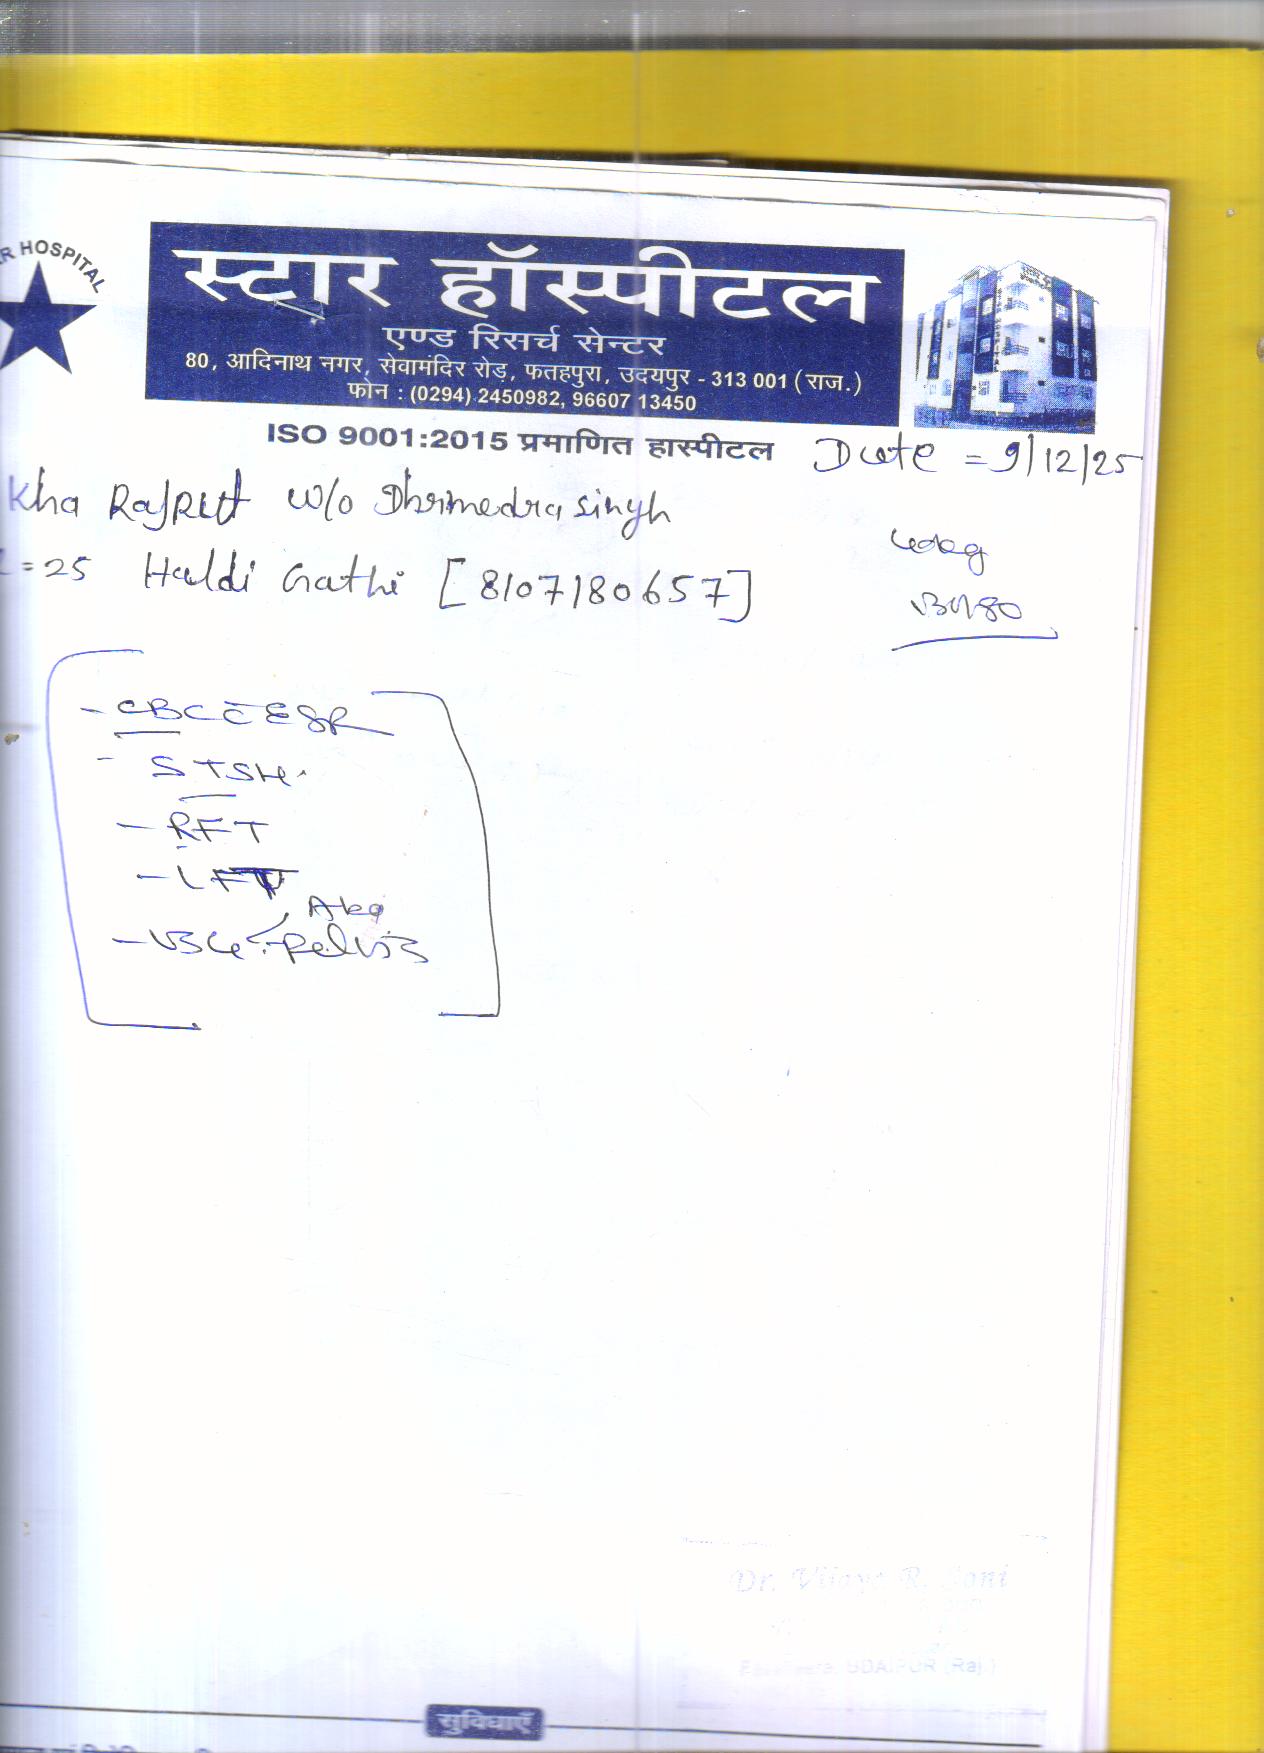 R HOSPITAL
स्टार हॉस्पीटल
एण्ड रिसर्च सेन्टर
80, आदिनाथ नगर, सेवामंदिर रोड़, फतहपुरा, उदयपुर - 313 001 (राज.)
फोन : (0294) 2450982, 96607 13450
ISO 9001:2015 प्रमाणित हास्पीटल
Date = 9/12/25
kha Rajput w/o Dhrmedra singh
= 25 Haldi Gathi [8107180657]
- CBC c̄ ESR
- STSH
- RFT
- LFT
- Pelvis
Dr. Vijaya R. Soni
UDAIPUR (Raj.)
सुविधाएँ